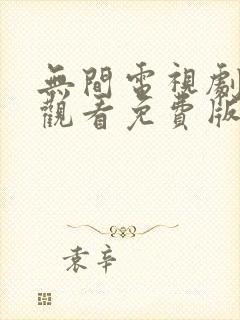 無間電視劇
觀看免費版
袁辛